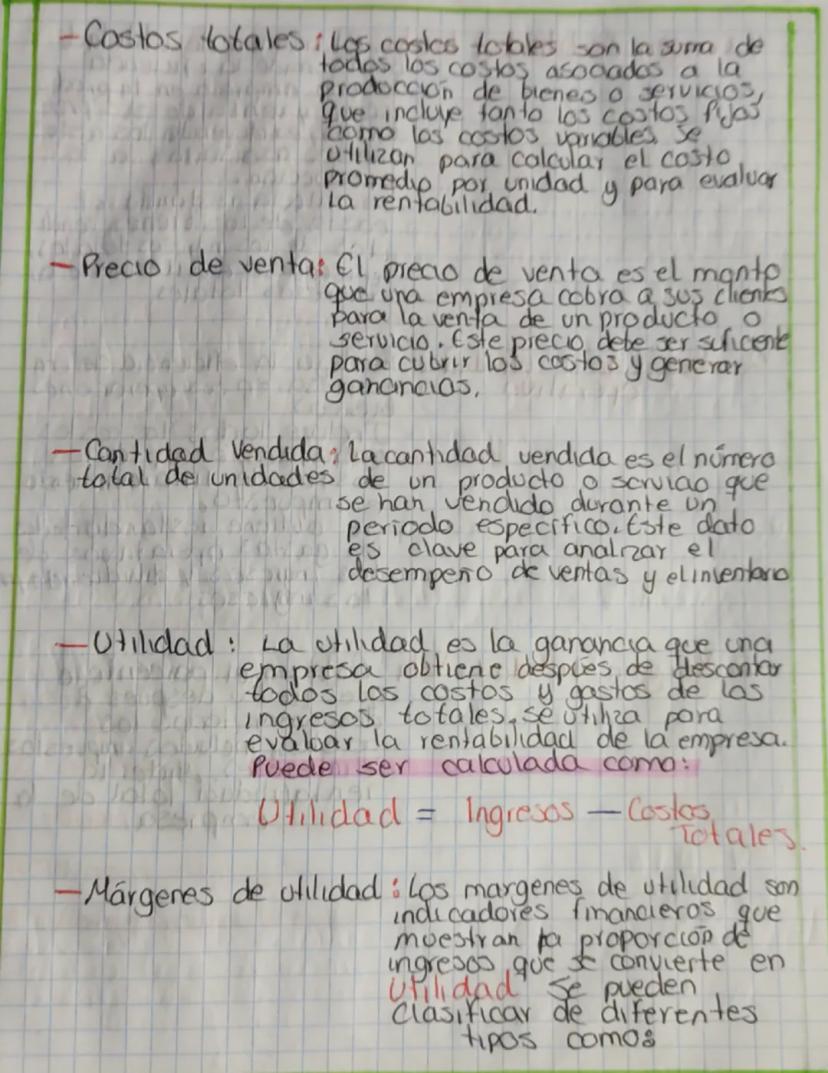 - Costos totales: Los costos totales son la suma de
todos los costos asociados a la
producción de bienes o servicios,
que incluye tanto los costos fijos
como los costos variables, se
utilizan para calcular el costo
promedio por unidad y para evaluar
La rentabilidad.
- Precio de venta: El precio de venta es el monto
que una empresa cobra a sus clientes
para la venta de un producto o
servicio. Este precio debe ser suficente
para cubrir los costos y generar
ganancias.
- Cantidad Vendida: La cantidad vendida es el número
total de unidades de un producto o servicio que
se han vendido durante un
periodo específico. Este dato
es clave para analizar el
desempeño de ventas y el inventario
- Utilidad: La utilidad es la ganancia que una
empresa obtiene después de descontar
todos los costos y gastos de los
ingresos totales, se utiliza para
evaluar la rentabilidad de la empresa.
Puede ser calculada como:
Utilidad = Ingresos - Costos
Totales.
- Márgenes de utilidad: Los margenes de utilidad son
indicadores financieros que
muestran la proporción de
ingresos que se convierte en
Utilidad se pueden
clasificar de diferentes
tipos como: